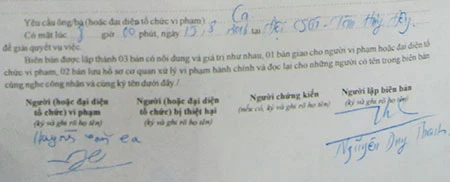 Yêu cầu ông/bà (hoặc đại diện tổ chức vi phạm) Ca
Có mặt lúc 8 giờ 00 phút, ngày 15, 8 tại Đội CSGT - Tân
để giải quyết vụ việc.
Biên bản được lập thành 03 bản có nội dung và giá trị như nhau, 01 bản giao cho người vi phạm hoặc đại diện tổ
chức vi phạm, 02 bản lưu hồ sơ cơ quan xử lý vi phạm hành chính và đọc lại cho những người có tên trong biên bản
cùng nghe công nhận và cùng ký tên dưới đây /
Người (hoặc đại diện
tổ chức) vi phạm
(ký và ghi rõ họ tên)
Huỳnh ca
Người (hoặc đại diện
tổ chức) bị thiệt hại
(ký và ghi rõ họ tên)
Người chứng kiến
(nếu có, ký và ghi rõ họ tên)
Người lập biên bản
(ký và ghi rõ họ tên)
Nguyễn Duy Thanh